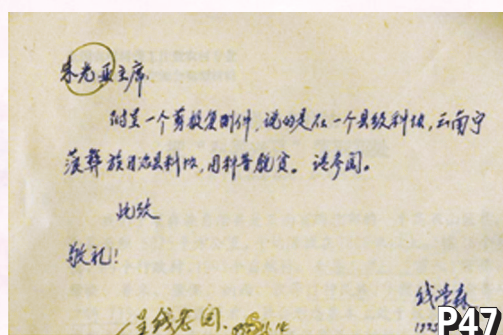 朱光亚主席:
附呈一个剪报复制件,说的是在一个县级科协,云南宁
蒗彝族自治县科协,用科普脱贫。请参阅。
此致
敬礼!
钱学森
呈钱老阅.
P47